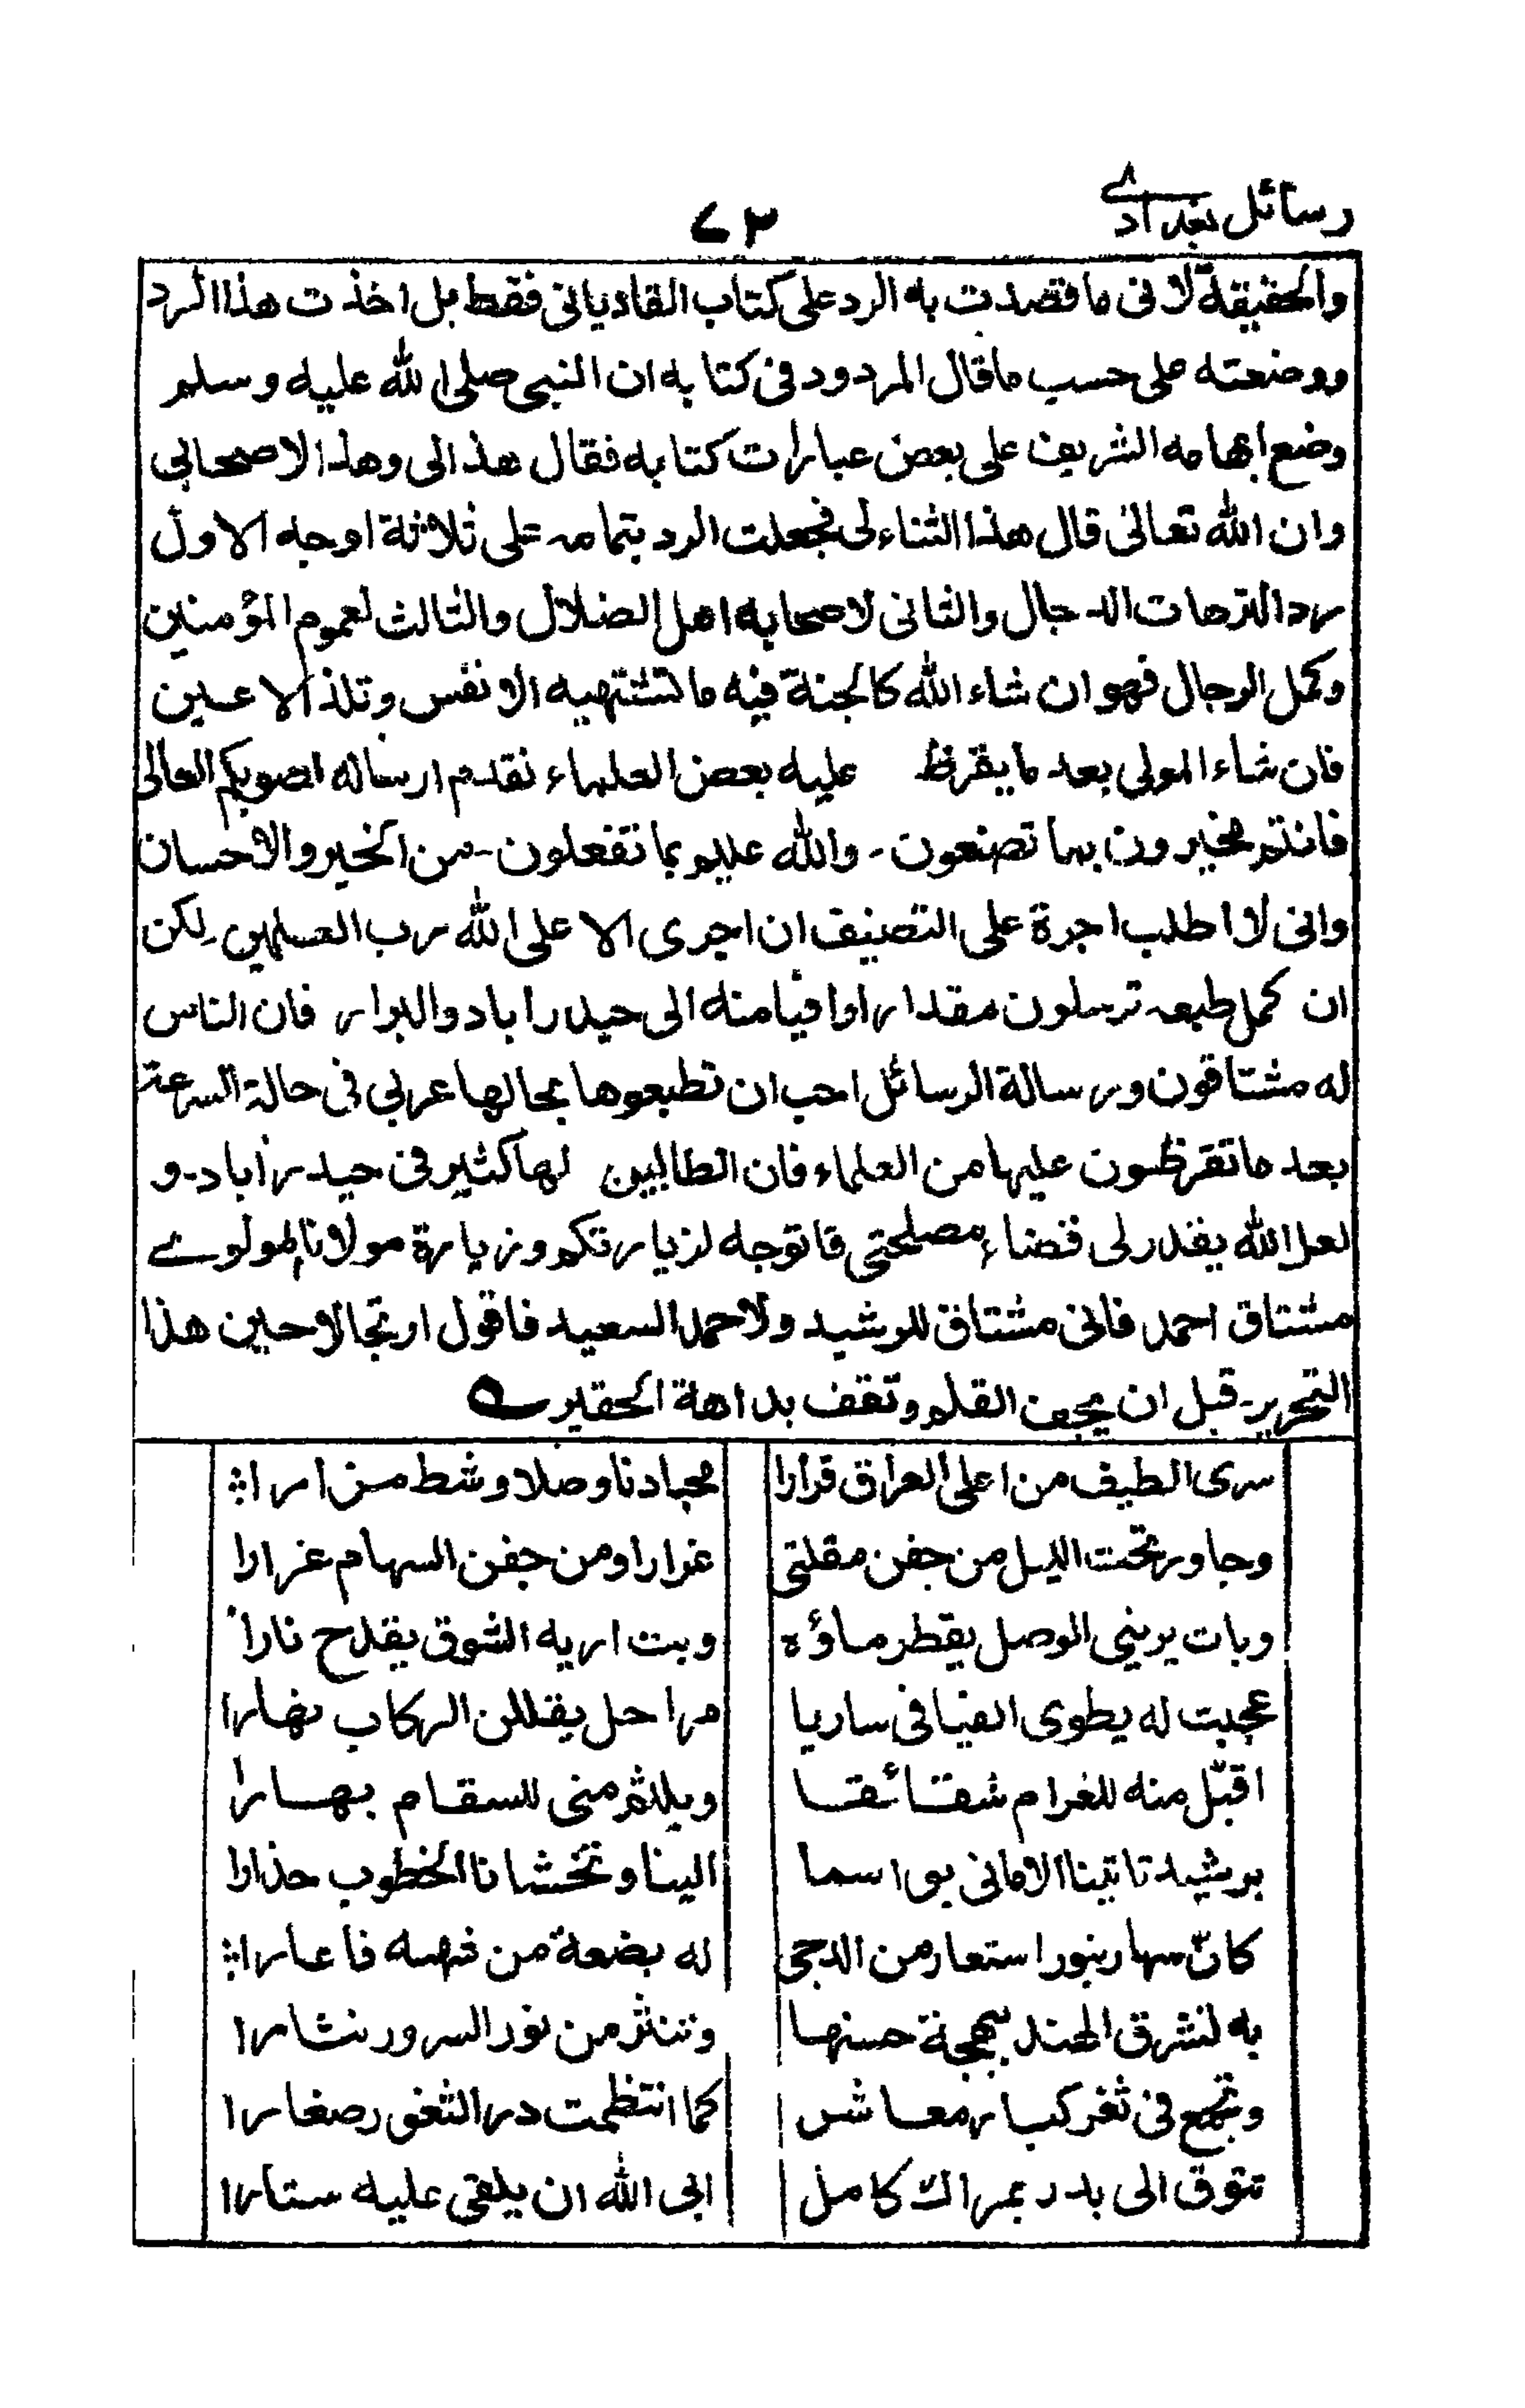 رسائل بغدادے
۷۳
والحقیقة لانی ما قصدت به الرد علی کتاب القادیانی فقط بل اخذت هذا الرد
ووضعته علی حسب ما قال المردود فی کتابه ان النبی صلی الله علیه وسلم
وضع ابهامه الشریف علی بعض عبارات کتابه فقال هذا لی وهذا لاصحابی
وان الله تعالی قال هذا الثناء لی فجعلت الرد بتمامه علی ثلاثة اوجه الاول
رد الترهات الدجال والثانی لاصحابه اهل الضلال والثالث لعموم المؤمنین
وکمل الرجال فهو ان شاء الله کالجنة فیه ما تشتهیه الانفس وتلذ الاعین
فان شاء المولی بعد ما یقرظ علیه بعض العلماء نقدم ارساله لصوبکم العالی
فانتم مخیرون بما تصنعون - والله علیم بما تفعلون - من الخیر والاحسان
وانی لا اطلب اجرة علی التصنیف ان اجری الا علی الله رب العلمین لکن
ان کمل طبعه ترسلون مقدارا وافیا منه الی حیدراباد والبرار فان الناس
له مشتاقون ورسالة الرسائل احب ان تطبعوها بحالها عربی فی حالة السرعة
بعد ما تقرظون علیها من العلماء فان الطالبین لها کثیر فی حیدراباد - و
لعل الله یقدر لی قضاء مصلحتی فاتوجه لزیارتکم وزیارة مولانا المولوے
مشتاق احمد فانی مشتاق للرشید ولاحمد السعید فاقول ارتجالا حین هذا
التحریر - قبل ان یجف القلم وتقف بداهة الحقیر
سری الطیف من اعلی العراق قرارا محبا دنا وصلا وشط مزارا
وجاور تحت اللیل من جفن مقلتی غرارا ومن جفن السهام غرارا
وبات یرینی الوصل یقطر ماؤه وبت اریه الشوق یقدح نارا
عجبت له یطوی الفیافی ساریا مراحل یقللن الرکاب نهارا
اقبّل منه للغرام شقائقا ویلثم منی للسقام بهارا
برشید تاتینا الامانی بواسما الینا وتخشانا الخطوب حذارا
کانّ سهار بنور استعار من الدجی له بضعة من فهمه فاعارا
به لتشرق الهند بهجة حسنها وتنثر من نور السرور نثارا
وتجمع فی ثغر کبار معاشر کما انتظمت در الثغور صغارا
تتوق الی بدر بمراك کامل ابی الله ان یلقی علیه ستارا